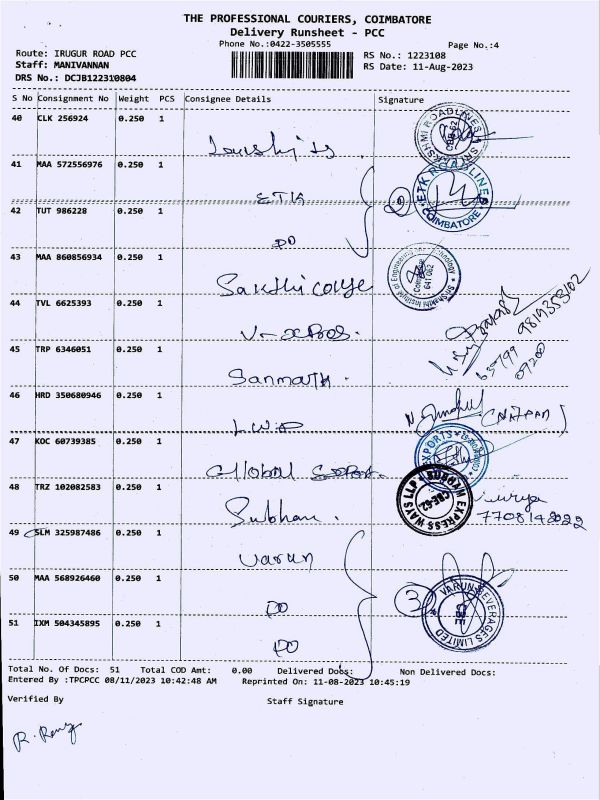 THE PROFESSIONAL COURIERS, COIMBATORE
Delivery Runsheet - PCC
Phone No.:0422-3505555
Page No.:4
Route: IRUGUR ROAD PCC
RS No.: 1223108
Staff: MANIVANNAN
RS Date: 11-Aug-2023
DRS No.: DCJB122310804
S No Consignment No Weight PCS Consignee Details Signature
40 CLK 256924 0.250 1
41 MAA 572556976 0.250 1
ETK
ETK ROADLINES
COIMBATORE
42 TUT 986228 0.250 1
DO
43 MAA 860856934 0.250 1
Sakthi college
Coimbatore
641 062
44 TVL 6625393 0.250 1
45 TRP 6346051 0.250 1
Sanmath.
46 HRD 350680946 0.250 1
47 KOC 60739385 0.250 1
Global
EXPORTS
48 TRZ 102082583 0.250 1
Subham.
SUBHAM EXPRESS WAYS LLP
CBE-62
7708148022
49 SLM 325987486 0.250 1
Varun
50 MAA 568926460 0.250 1
DO
3
VARUN BEVERAGES LIMITED
CBE
51 IXM 504345895 0.250 1
DO
Total No. Of Docs: 51 Total COD Amt: 0.00 Delivered Docs: Non Delivered Docs:
Entered By :TPCPCC 08/11/2023 10:42:48 AM Reprinted On: 11-08-2023 10:45:19
Verified By Staff Signature